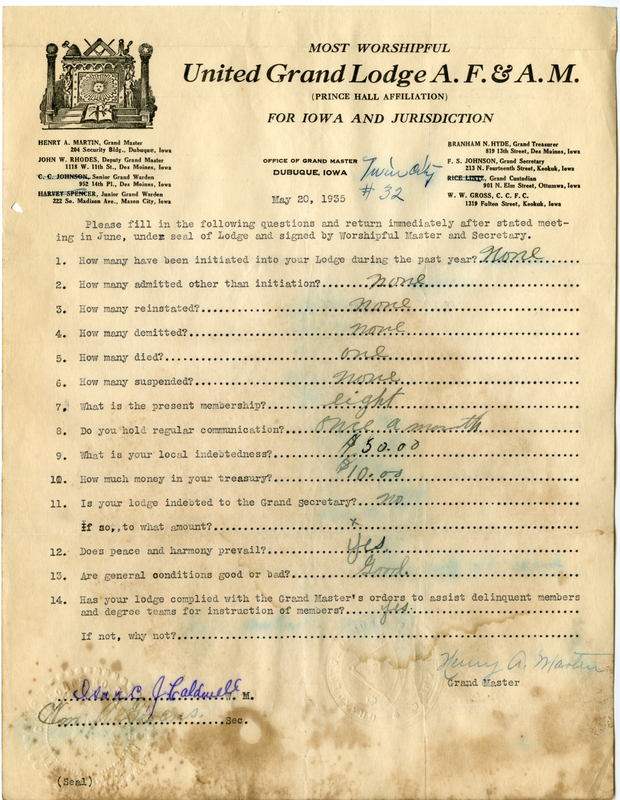 MOST WORSHIPFUL
United Grand Lodge A. F. & A. M.
(PRINCE HALL AFFILIATION)
FOR IOWA AND JURISDICTION
HENRY A. MARTIN, Grand Master
204 Security Bldg., Dubuque, Iowa
JOHN W. RHODES, Deputy Grand Master
1118 W. 11th St., Des Moines, Iowa
C. C. JOHNSON, Senior Grand Warden
952 14th Pl., Des Moines, Iowa
HARVEY SPENCER, Junior Grand Warden
222 So. Madison Ave., Mason City, Iowa
OFFICE OF GRAND MASTER
DUBUQUE, IOWA
Twin City
# 32
BRANHAM N. HYDE, Grand Treasurer
819 13th Street, Des Moines, Iowa
F. S. JOHNSON, Grand Secretary
213 N. Fourteenth Street, Keokuk, Iowa
RICE LINTZ, Grand Custodian
901 N. Elm Street, Ottumwa, Iowa
W. W. GROSS, C. C. F. C.
1319 Fulton Street, Keokuk, Iowa
May 20, 1935
Please fill in the following questions and return immediately after stated meet-
ing in June, under seal of Lodge and signed by Worshipful Master and Secretary.
1. How many have been initiated into your Lodge during the past year? None
2. How many admitted other than initiation? none
3. How many reinstated? none
4. How many demitted? none
5. How many died? one
6. How many suspended? none
7. What is the present membership? eight
8. Do you hold regular communication? once a month
9. What is your local indebtedness? $50.00
10. How much money in your treasury? $10.00
11. Is your lodge indebted to the Grand Secretary? no
If so, to what amount? x
12. Does peace and harmony prevail? Yes
13. Are general conditions good or bad? Good
14. Has your lodge complied with the Grand Master's orders to assist delinquent members
and degree teams for instruction of members? yes
If not, why not?
Henry A. Martin
Grand Master
Isaac J Caldwell W. M.
Sec.
(Seal)